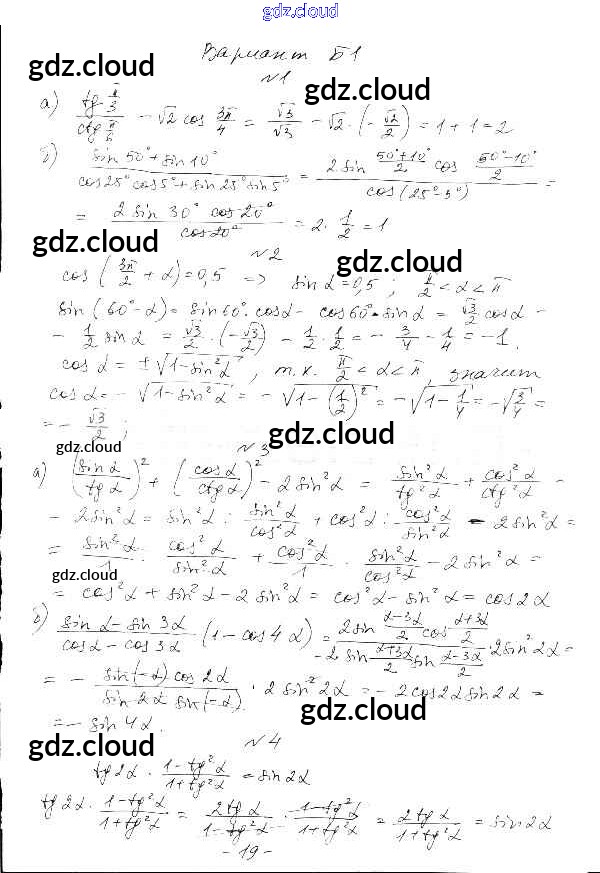 gdz.cloud
Вариант Б1
gdz.cloud
№1
gdz.cloud
а) (tg π/3)/(ctg π/6) − √2 cos 3π/4 = √3/√3 − √2 · (−√2/2) = 1 + 1 = 2
б) (sin 50° + sin 10°)/(cos 25° cos 5° + sin 25° sin 5°) = (2 sin (50°+10°)/2 cos (50°−10°)/2)/(cos (25°−5°)) =
= (2 sin 30° cos 20°)/(cos 20°) = 2 · 1/2 = 1
gdz.cloud
№2
gdz.cloud
cos (3π/2 + α) = 0,5 => sin α = 0,5 ; π/2 < α < π
sin (60° − α) = sin 60° · cos α − cos 60° · sin α = √3/2 cos α −
− 1/2 sin α = √3/2 · (−√3/2) − 1/2 · 1/2 = − 3/4 − 1/4 = −1.
cos α = ± √(1 − sin² α), т.к. π/2 < α < π, значит
cos α = − √(1 − sin² α) = − √(1 − (1/2)²) = − √(1 − 1/4) = − √(3/4) =
= − √3/2 ;
gdz.cloud
gdz.cloud
№3
а) (sin α/tg α)² + (cos α/ctg α)² − 2 sin² α = sin² α/tg² α + cos² α/ctg² α −
− 2 sin² α = sin² α : sin² α/cos² α + cos² α : cos² α/sin² α − 2 sin² α =
= sin² α/1 · cos² α/sin² α + cos² α/1 · sin² α/cos² α − 2 sin² α =
gdz.cloud
= cos² α + sin² α − 2 sin² α = cos² α − sin² α = cos 2α
gdz.cloud
б) (sin α − sin 3α)/(cos α − cos 3α) (1 − cos 4α) = (2 sin (α−3α)/2 cos (α+3α)/2)/(−2 sin (α+3α)/2 sin (α−3α)/2) · 2 sin² 2α =
= − (sin(−α) cos 2α)/(sin 2α sin (−α)) · 2 sin² 2α = − 2 cos 2α sin 2α =
= − sin 4α.
gdz.cloud
gdz.cloud
№4
tg 2α · (1 − tg² α)/(1 + tg² α) = sin 2α
tg 2α · (1 − tg² α)/(1 + tg² α) = (2 tg α)/(1 − tg² α) · (1 − tg² α)/(1 + tg² α) = (2 tg α)/(1 + tg² α) = sin 2α
- 19 -